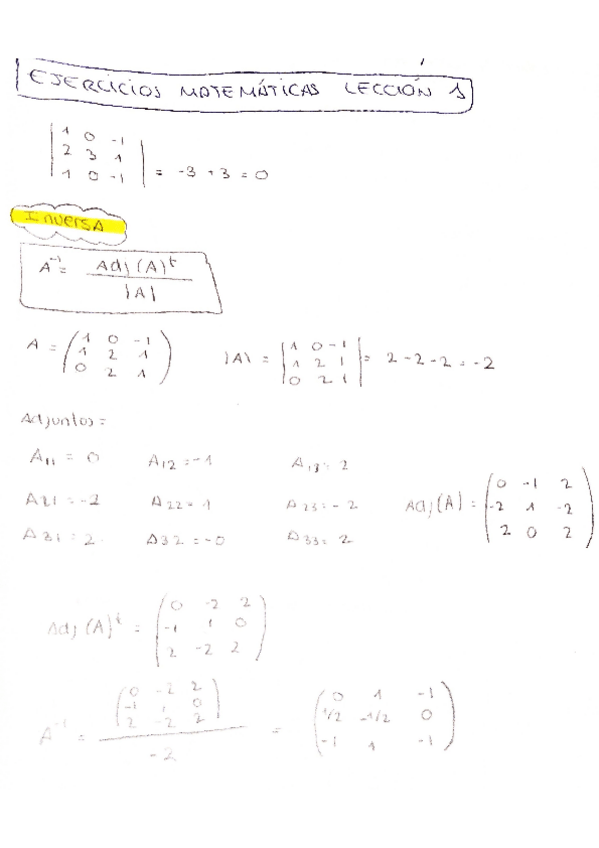 EJERCICIOS MATEMÁTICAS LECCIÓN 1
|1 0 -1|
|2 3 1|
|1 0 -1| = -3 + 3 = 0
InversA
A⁻¹ = Adj (A)ᵗ / |A|
A = (1 0 -1 / 1 2 1 / 0 2 1) |A| = |1 0 -1 / 1 2 1 / 0 2 1| = 2 - 2 - 2 = -2
Adjuntos =
A₁₁ = 0 A₁₂ = -1 A₁₃ = 2
A₂₁ = -2 A₂₂ = 1 A₂₃ = -2 Adj (A) = (0 -1 2 / -2 1 -2 / 2 0 2)
A₃₁ = 2 A₃₂ = -0 A₃₃ = 2
Adj (A)ᵗ = (0 -2 2 / -1 1 0 / 2 -2 2)
A⁻¹ = (0 -2 2 / -1 1 0 / 2 -2 2) / -2 = (0 1 -1 / 1/2 -1/2 0 / -1 1 -1)